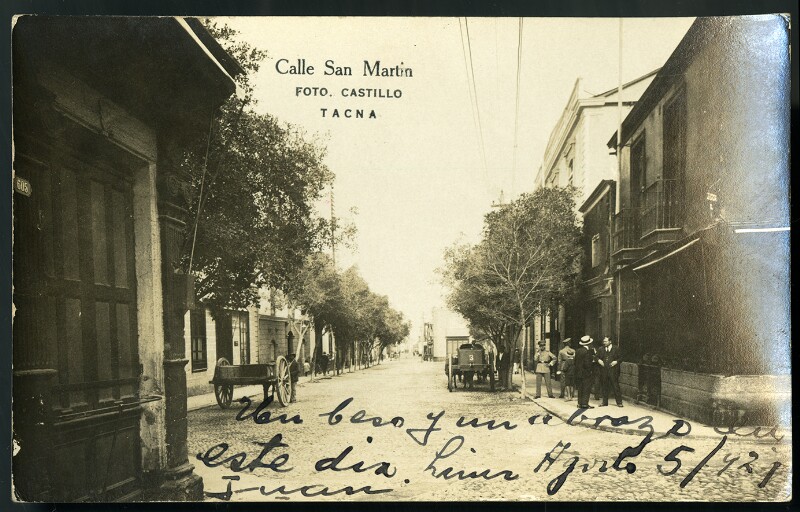 Calle San Martin
FOTO. CASTILLO
TACNA
605
Un beso y un abrazo en
este dia. Lima Agosto 5/921
Juan.